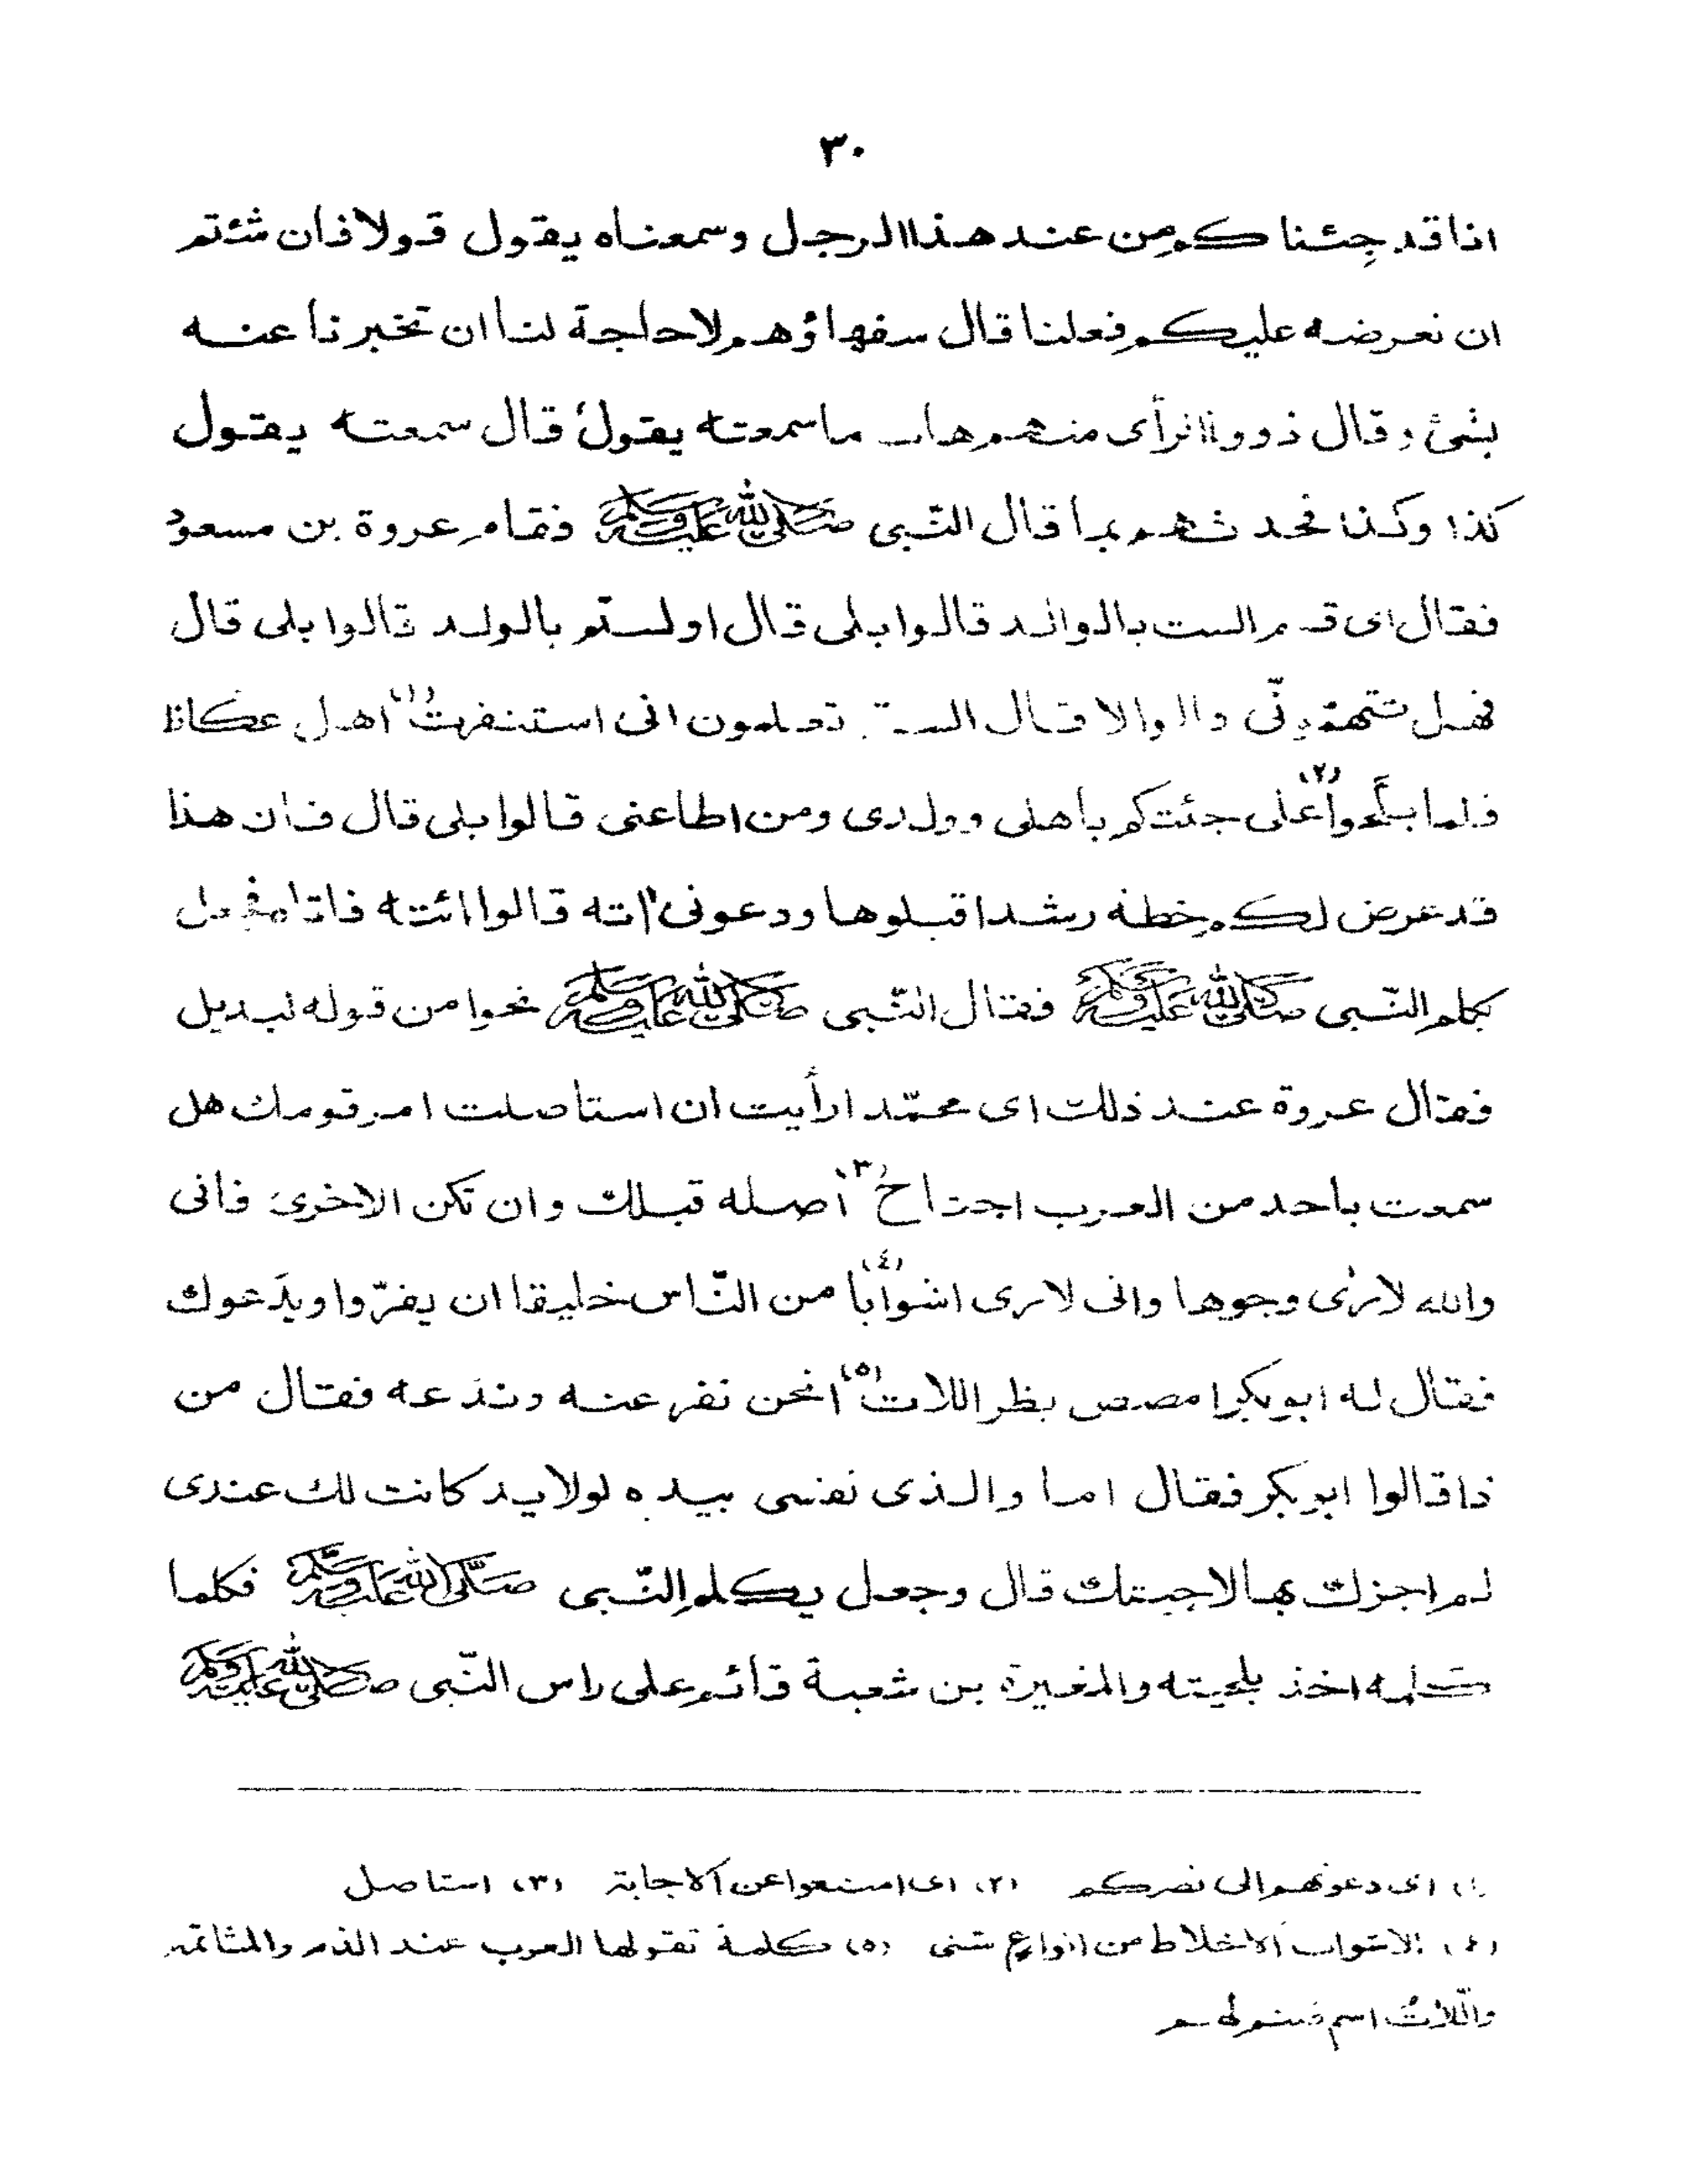 ٣٠
انا قد جِئنا كم من عند هذا الرجل وسمعناه يقول قولا فان شئتم
ان نعرضه عليكم فعلنا قال سفهاؤهم لا حاجة لنا ان تخبرنا عنه
بشئ وقال ذووا الرأى منهم هات ما سمعته يقول قال سمعته يقول
كذا وكذا فحد ثهم بما قال النّبى صلى الله عليه وسلم فقام عروة بن مسعود
فقال اى قوم الست بالوالد قالوا بلى قال او لستم بالولد قالوا بلى قال
فهل تتهمونّى قالوا لا قال الستم تعلمون انى استنفرت (١) اهل عكاظ
فلما بلّحوا (٢) على جئتكم باهلى وولدى ومن اطاعنى قالوا بلى قال فان هذا
قد عرض لكم خطة رشد اقبلوها ودعونى اته قالوا ائته فاتاه فجعل
يكلم النّبى صلى الله عليه وسلم فقال النّبى صلى الله عليه وسلم نحوا من قوله لبديل
فقال عروة عند ذلك اى محمّد ارأيت ان استاصلت امر قومك هل
سمعت باحد من العرب اجتاح (٣) اصله قبلك وان تكن الاخرى فانى
والله لارٰى وجوها وانى لارى اشوابا (٤) من النّاس خليقا ان يفرّوا ويدَعوك
فقال له ابوبكر امصص بظر اللات (٥) انحن نفر عنه وندَعه فقال من
ذا قالوا ابوبكر فقال اما والذى نفسى بيده لولا يد كانت لك عندى
لم اجزك بها لاجبتك قال وجعل يكلم النّبى صلّى الله عليه وسلّم فكلما
كلمه اخذ بلحيته والمغيرة بن شعبة قائم على راس النّبى صلى الله عليه وسلم
(١) اى دعوتهم الى نصركم (٢) اى امتنعوا عن الاجابة (٣) استاصل
(٤) الاشواب الاخلاط من انواع شتى (٥) كلمة تقولها العرب عند الذم والمشاتمة
واللّات اسم صنم لهم